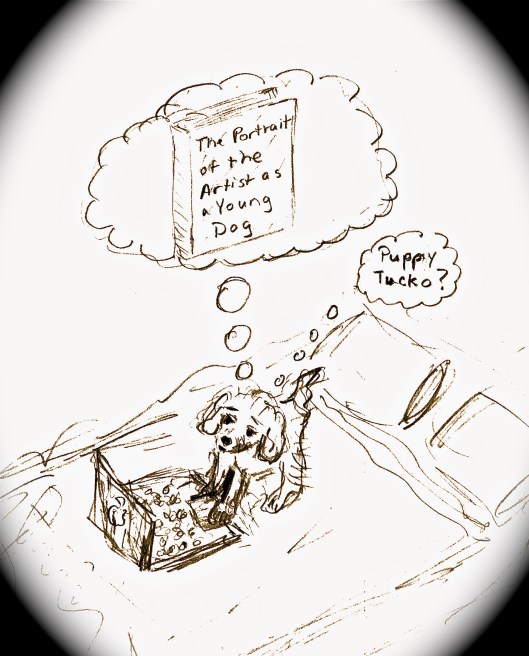 The Portrait
of the
Artist as
a Young
Dog
Puppy
Tucko?